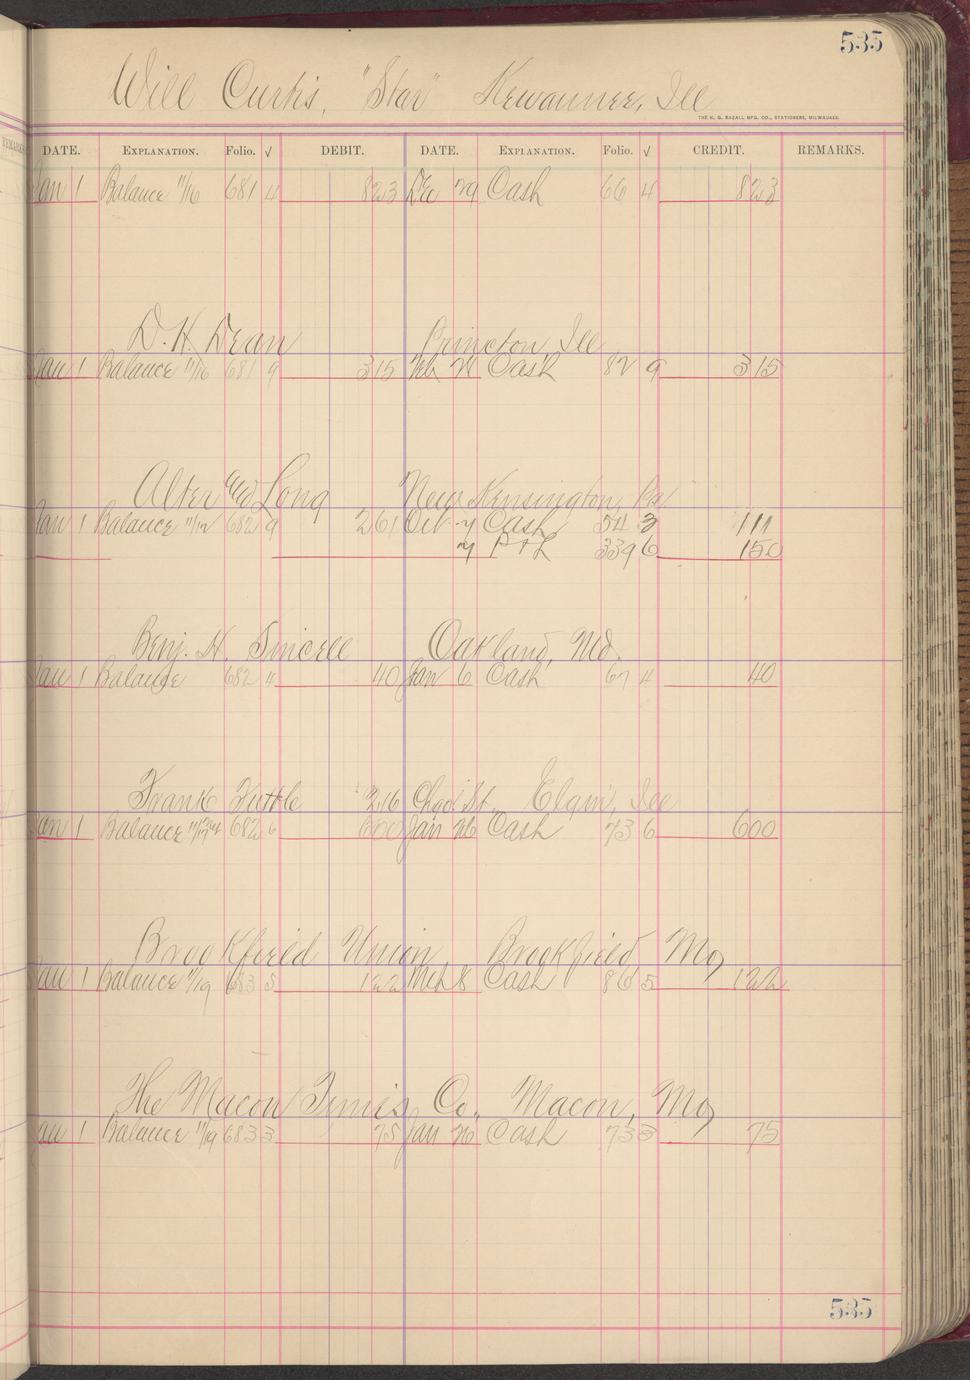 535
Will Curtis, "Star" Kewaunee, Ill
THE H. G. RAZALL MFG. CO., STATIONERS, MILWAUKEE.
REMARKS
DATE. EXPLANATION. Folio. √ DEBIT. DATE. EXPLANATION. Folio. √ CREDIT. REMARKS.
Jan 1 Balance 11/16 681 4 823 Dec 29 Cash 66 4 823
D. H. Dean Princton Ill
Jan 1 Balance 11/16 681 9 315 Feb 28 Cash 82 9 315
Alter and Long New Kensington, Pa
Jan 1 Balance 11/12 682 9 261 Oct Cash 311 3 111
P & L 339 6 150
Benj. H. Sincell Oakland, Md.
Jan 1 Balance 682 4 40 Jan 6 Cash 67 4 40
Frank Tuttle 216 Chapl St., Elgin, Ill
Jan 1 Balance 682 6 600 Jan 26 Cash 73 6 600
Brookfield Union, Brookfield, Mo,
Jan 1 Balance 11/19 683 5 122 Mch 8 Cash 86 5 122
The Macon Times Co., Macon, Mo,
Jan 1 Balance 11/19 683 3 75 Jan 26 Cash 73 3 75
535